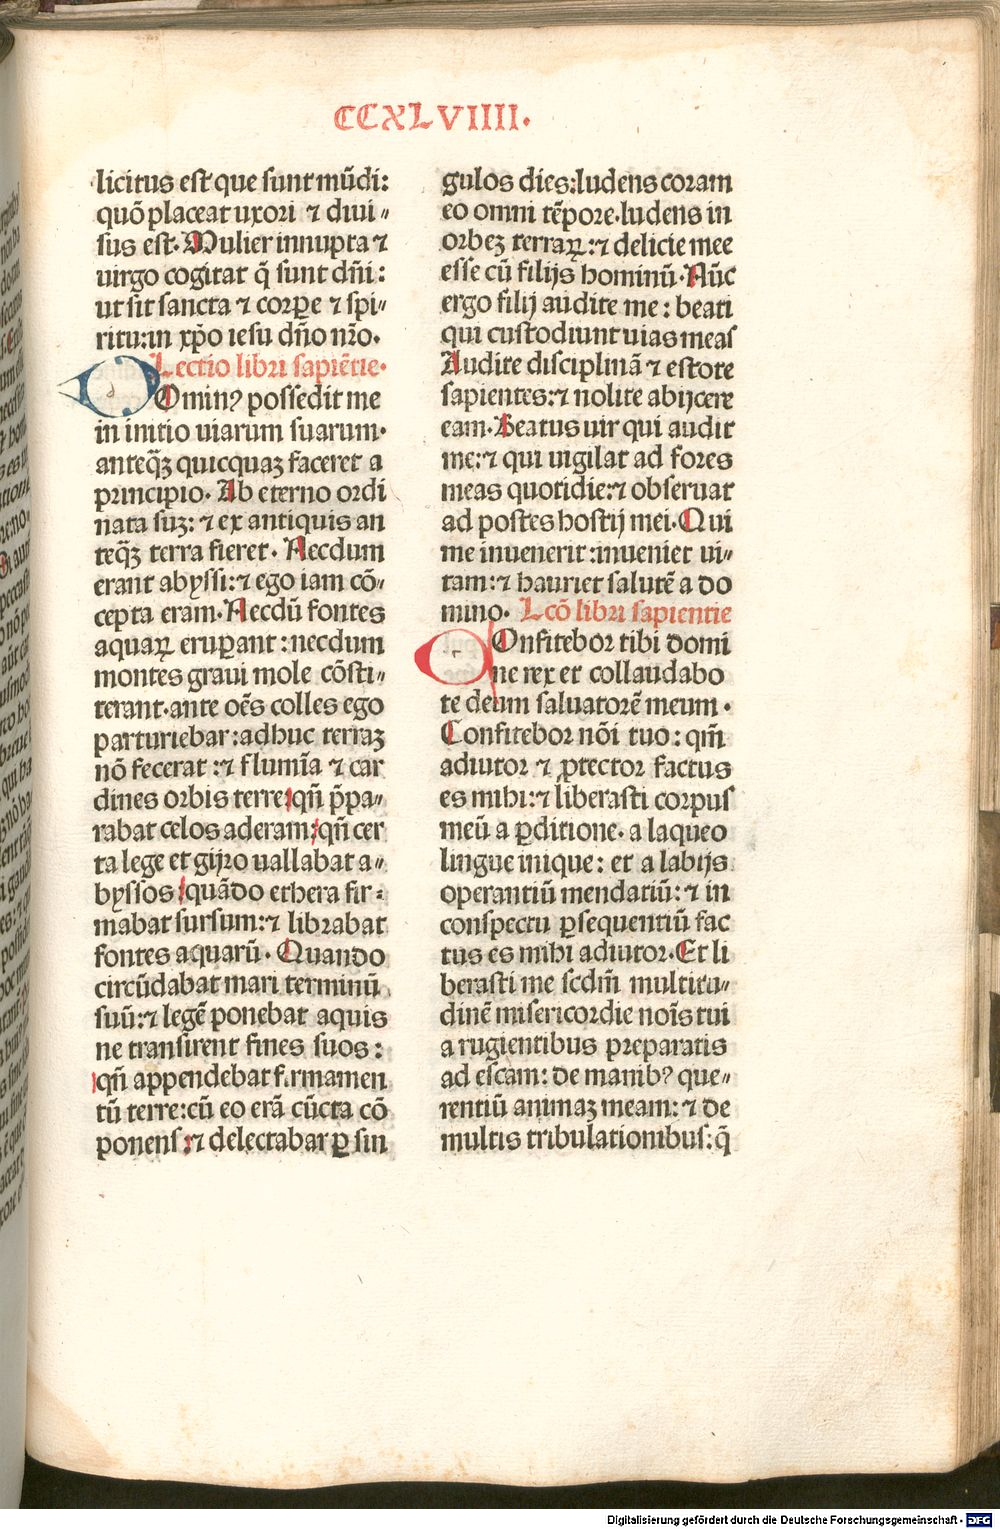 CCXLVIIII.
licitus est que sunt mūdi:
quō placeat uxori ⁊ diui⸗
sus est. Mulier innupta ⁊
uirgo cogitat q̄ sunt dn̄i:
ut sit sancta ⁊ corꝑe ⁊ spi⸗
ritu:in xp̄o iesu dn̄o nr̄o.
Lectio libri sapiētie.
DOminꝰ possedit me
in initio uiarum suarum.
anteqꝫ̄ quicquaꝫ faceret a
principio. Ab eterno ordi
nata suꝫ: ⁊ ex antiquis an
teqꝫ̄ terra fieret. Necdum
erant abyssi:⁊ ego iam cō⸗
cepta eram. Necdū fontes
aquaꝝ eruꝑant:necdum
montes graui mole cōsti⸗
terant.ante oēs colles ego
parturiebar:adhuc terraꝫ
nō fecerat:⁊ flumīa ⁊ car
dines orbis terre:qn̄ p̄pa⸗
rabat celos aderam:qn̄ cer
ta lege et gijro uallabat a⸗
byssos:quādo ethera fir⸗
mabat sursum:⁊ librabat
fontes aquarū. Quando
circūdabat mari terminū
suū:⁊ legē ponebat aquis
ne transirent fines suos:
qn̄ appendebat firmamen
tū terre:cū eo erā cūcta cō
ponens:⁊ delectabar ꝑ sin
gulos dies:ludens coram
eo omni tēpore.ludens in
orbeꝫ terraꝝ:⁊ delicie mee
esse cū filijs hominū. Nūc
ergo filij audite me: beati
qui custodiunt uias meas
Audite disciplinā ⁊ estote
sapientes:⁊ nolite abijcere
eam. Beatus uir qui audit
me:⁊ qui uigilat ad fores
meas quotidie:⁊ obseruat
ad postes hostij mei. Qui
me inuenerit:inueniet ui⸗
tam:⁊ hauriet salutē a do
mino. Lcō libri sapientie
COnfitebor tibi domi
ne rex et collaudabo
te deum saluatorē meum.
Confitebor nōi tuo: qm̄
adiutor ⁊ ꝓtector factus
es mihi:⁊ liberasti corpus
meū a ꝑditione. a laqueo
lingue inique: et a labijs
operantiū mendatiū:⁊ in
conspectu ꝑsequentiū fac
tus es mihi adiutor. Et li
berasti me scdm̄ multitu⸗
dinē misericordie noīs tui
a rugientibus preparatis
ad escam: de manibꝰ que⸗
rentiū animaꝫ meam: ⁊ de
multis tribulationibus:q̄
Digitalisierung gefördert durch die Deutsche Forschungsgemeinschaft - DFG